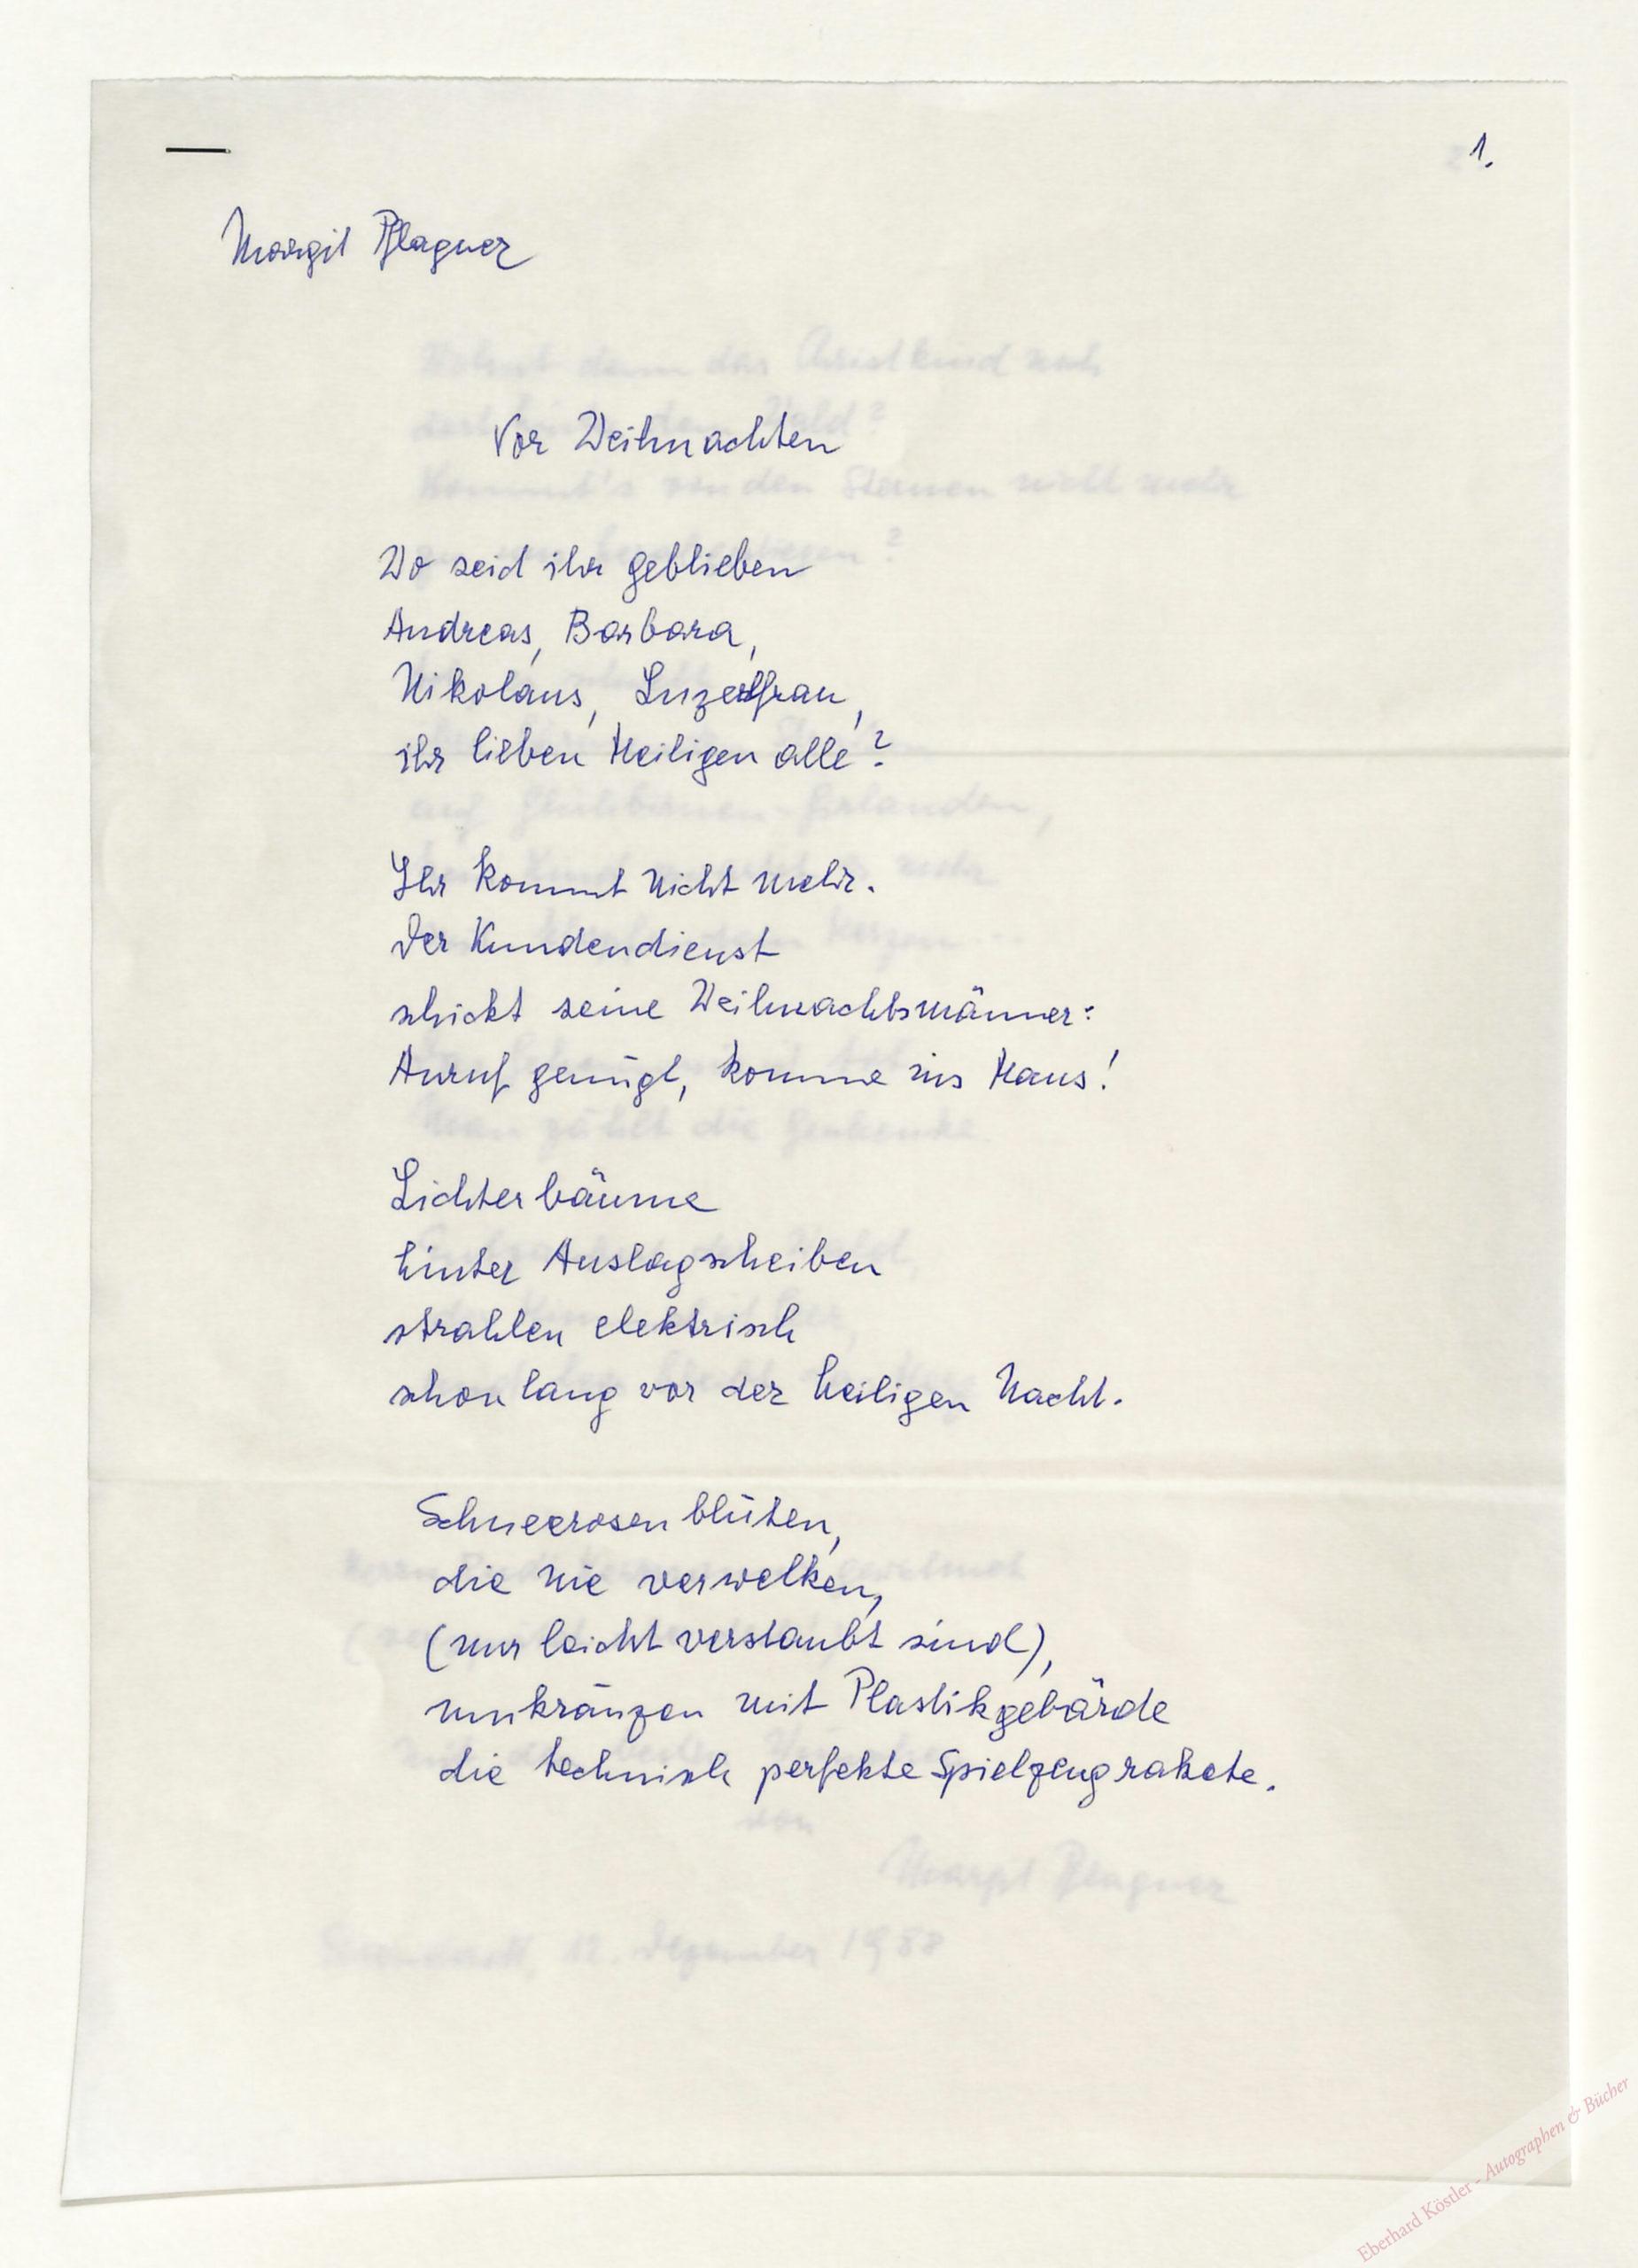 1.
Margit Pflagner
Vor Weihnachten
Wo seid ihr geblieben
Andreas, Barbara,
Nikolaus, Luzelfrau,
ihr lieben Heiligen alle?
Ihr kommt nicht mehr.
Der Kundendienst
schickt seine Weihnachtsmänner:
Anruf genügt, komme ins Haus!
Lichterbäume
hinter Auslagscheiben
strahlen elektrisch
schon lang vor der heiligen Nacht.
Schneerosenblüten,
die nie verwelken,
(nur leicht verstaubt sind),
umkränzen mit Plastikgebärde
die technisch perfekte Spielzeugrakete.
Eberhard Köstler - Autographen & Bücher